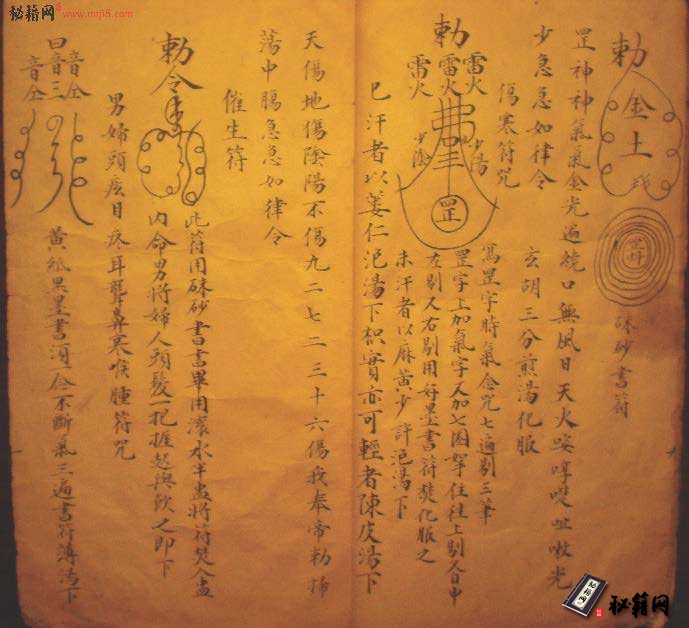 秘籍网
www.miji8.com
勅
金土
硃砂書符
罡神神氣氣金光遍繞口無風日天火
光
少急急如律令
玄胡三分煎湯化服
傷寒符咒
勅
雷火
雷火
雷火
少陽
少陰
罡
寫罡字時氣念咒七遍剔三筆
罡字上加氣字又加七圈
往上剔入日中
左剔又右剔用好墨書符焚化服之
未汗者以麻黃少許泡湯下
已汗者以姜仁泡湯下枳實亦可輕者陳皮湯下
天傷地傷陰陽不傷九二七二三十六傷我奉帝勅掃
蕩中腸急急如律令
催生符
勅令
此符用硃砂書書畢用滚水半盞將符焚入盞
内命男將婦人頭髮一把握起與飲之即下
男婦頭疼目疼耳聾鼻寒喉腫符咒
黄紙黑墨書
念不斷氣三遍書符薄湯下
秘籍网